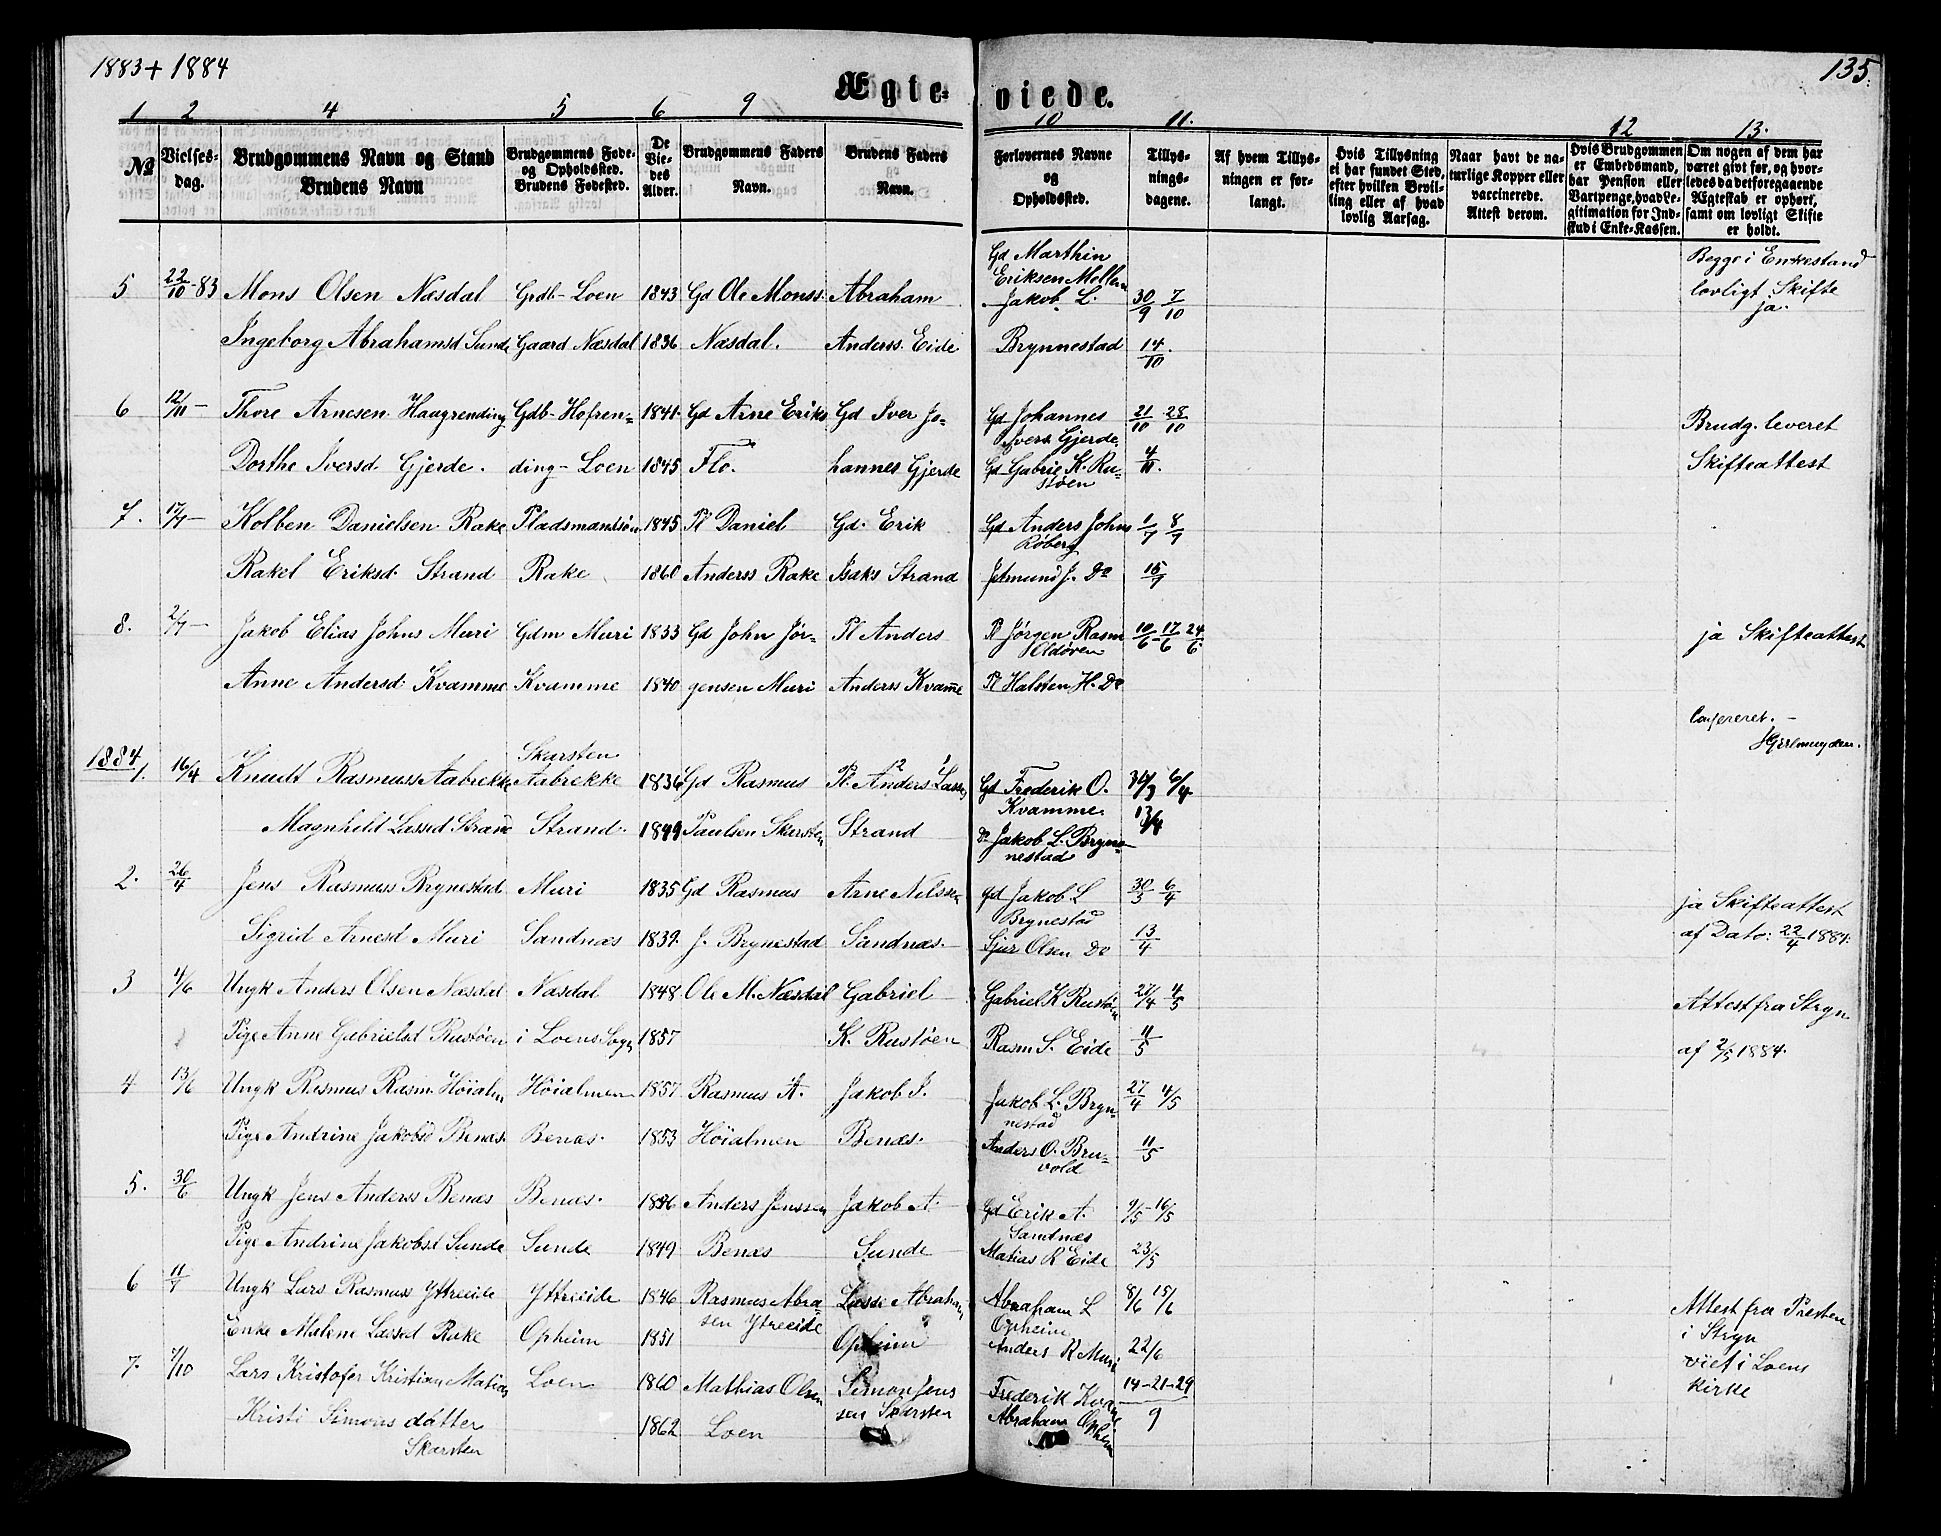 1883 + 1884
135.
Ægteviede.
1 2 4 5 6 9 10 11. 12 13.
№
Vielses-
dag.
Brudgommens Navn og Stand
Brudens Navn
Brudgommens Føde-
og Opholdssted.
Brudens Fødested.
De
Vie-
des
Alder.
Brudgommens Faders
Navn.
Brudens Faders
Navn.
Forlovernes Navne
og
Opholdssted.
Tillys-
nings-
dagene.
Af hvem Tillys-
ningen er for-
langt.
Hvis Tillysning
ei har fundet Sted,
efter hvilken Bevil-
ling eller af hvad
lovlig Aarsag.
Naar havt de na-
turlige Kopper eller
vaccinerede.
Attest derom.
Hvis Brudgommen
er Embedsmand,
har Pension eller
Vartpenge, hvad Le-
gitimation for Ind-
skud i Enke-Kassen.
Om nogen af dem har
været givt før, og hvor-
ledes da det foregaaende
Ægteskab er ophørt,
samt om lovligt Skifte
er holdt.
Gd Marthin
Eriksen Mellem
Begge i Enkestand
5 22/10-83 Mons Olsen Næsdal Grdb- Loen 1843 Gd Ole Monss. Abraham Jakob L. 30/9 7/10 lovligt Skifte
ja.
Ingeborg Abrahamsd Sunde Gaard Næsdal 1836 Næsdal. Anderss. Eide Brynnestad 14/10.
6 12/11 - Thore Arnesen Haugrending Gdb- Hofren- 1841. Gd Arne Eriks Gd Iver Jo- Gd Johannes 21/10 28/10 Brudg. leveret
Ivers Gjerde.
Dorthe Iversd. Gjerde. ding- Loen 1845 Flo. hannes Gjerde Gd Gabriel K. Ru- 4/11. Skifteattest
støen
7. 17/7 - Kolben Danielsen Rake Pladsmandssøn 1845 Pl Daniel Gd. Erik Gd Anders Johns 1/7 8/7
Røberg
Rakel Eriksd. Strand Rake 1860 Anderss Rake Isaks Strand Jetmund J. Do 15/7
8. 2/7 - Jakob Elias Johns Muri Gdm Muri 1833 Gd John Jør- Pl Anders Pl Jørgen Rasm 10/6-17/6 24/6 ja Skifteattest
Oldøren
Anne Andersd. Kvamme Kvamme 1840 gensen Muri Anderss Kvam̄e Pl Halsten H. Do
1884 Skarsten
1. 16/4 Knudt Rasmuss Aabrekke Aabrekke 1836 Gd Rasmus Pl. Anders Lass 30/3 6/4
Gd Frederik O.
Kvamme
Magnhild Lassed Strand Strand. 1849 Paulsen Skarsten Strand 13/4
Do Jakob L. Bryn-
nestad
2. 26/4 Jens Rasmuss Brynestad Muri 1835 Gd Rasmus Arne Nilssen Gd Jakob L 30/3 6/4 ja Skifteattest
Brynestad
Sigrid Arnesd Muri Sandnæs 1839. J. Brynestad Sandnæs. Sjur Olsen Do 13/4 af Dato: 22/4 1884.
3 4/6 Ungk Anders Olsen Næsdal Næsdal 1848 Ole M. Næsdal Gabriel Gabriel K Rustøen 4/5 Attest fra Stryn
Pige Anne Gabrielsd Rustøen i Loens Sogn 1857 K. Rustøen Rasm S. Eide 11/5 af 2/5 1884.
4 13/6 Ungk Rasmus Rasm. Høialm Høialmen 1857 Rasmus A. Jakob J. Jakob L. Bryn- 27/4 4/5
nestad
Pige Andrine Jakobsd Benæs. Benæs. 1853 Høialmen Benæs. Anders O. Bru- 11/5
vold
5. 30/6 Ungk Jens Anderss Benæs Benæs. 1856 Anders Jenssen Jakob A. Gd Erik A. 9/5-16/5
Sandnæs
Pige Andrine Jakobsd Sunde Sunde 1849 Benæs Sunde Matias R Eide 23/5
6 11/7 Ungk Lars Rasmuss Yttreeide Yttreeide 1846 Rasmus Abra- Lasse Abraham Abraham L 8/6 15/6 Attest fra Presten
sen Ytreeide Opheim i Stryn
Enke Malene Lassed Rake Opheim 1851 Opheim Anders R Muri 22/6
7. 7/10 Lars Kristofer Kristian Matias Loen 1860 Mathias Olsen Simon Jens Frederik Kvam̄e 14-21-29 viet i Loens
sen Skarsten 9 kirke
Kristi Simons datter 1862 Loen Abraham Opheim
Skarsten